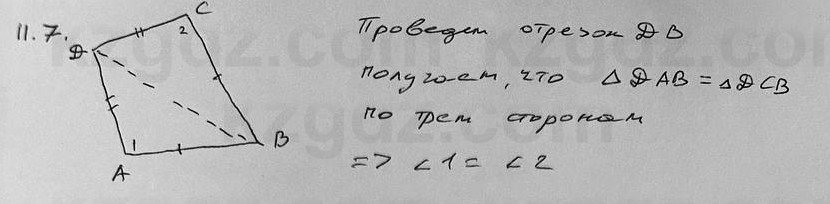 11.7.
C
2
D
1
A
B
Проведем отрезок DB
получаем, что △DAB = △DCB
по трем сторонам
=> ∠1 = ∠2